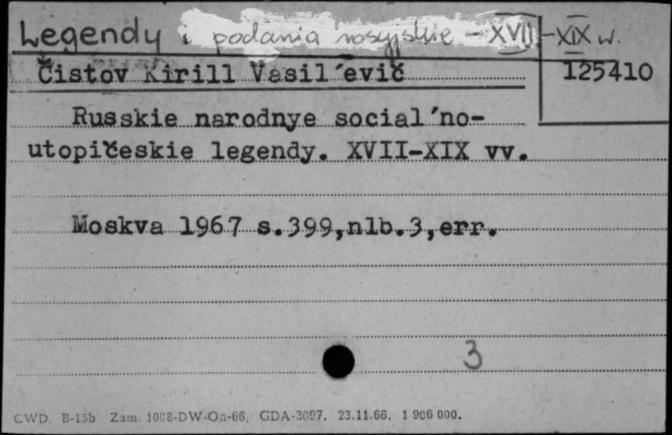 Legendy i podania rosyjskie - XVII-XIX w.
Čistov Kirill Vasil´evič
125410
Russkie narodnye social´no-
utopičeskie legendy. XVII-XIX vv.
Moskva 1967 s.399,nlb.3,err.
3
CWD. B-15b Zam. 1008-DW-Oa-66. GDA-3097. 23.11.66. 1 906 000.